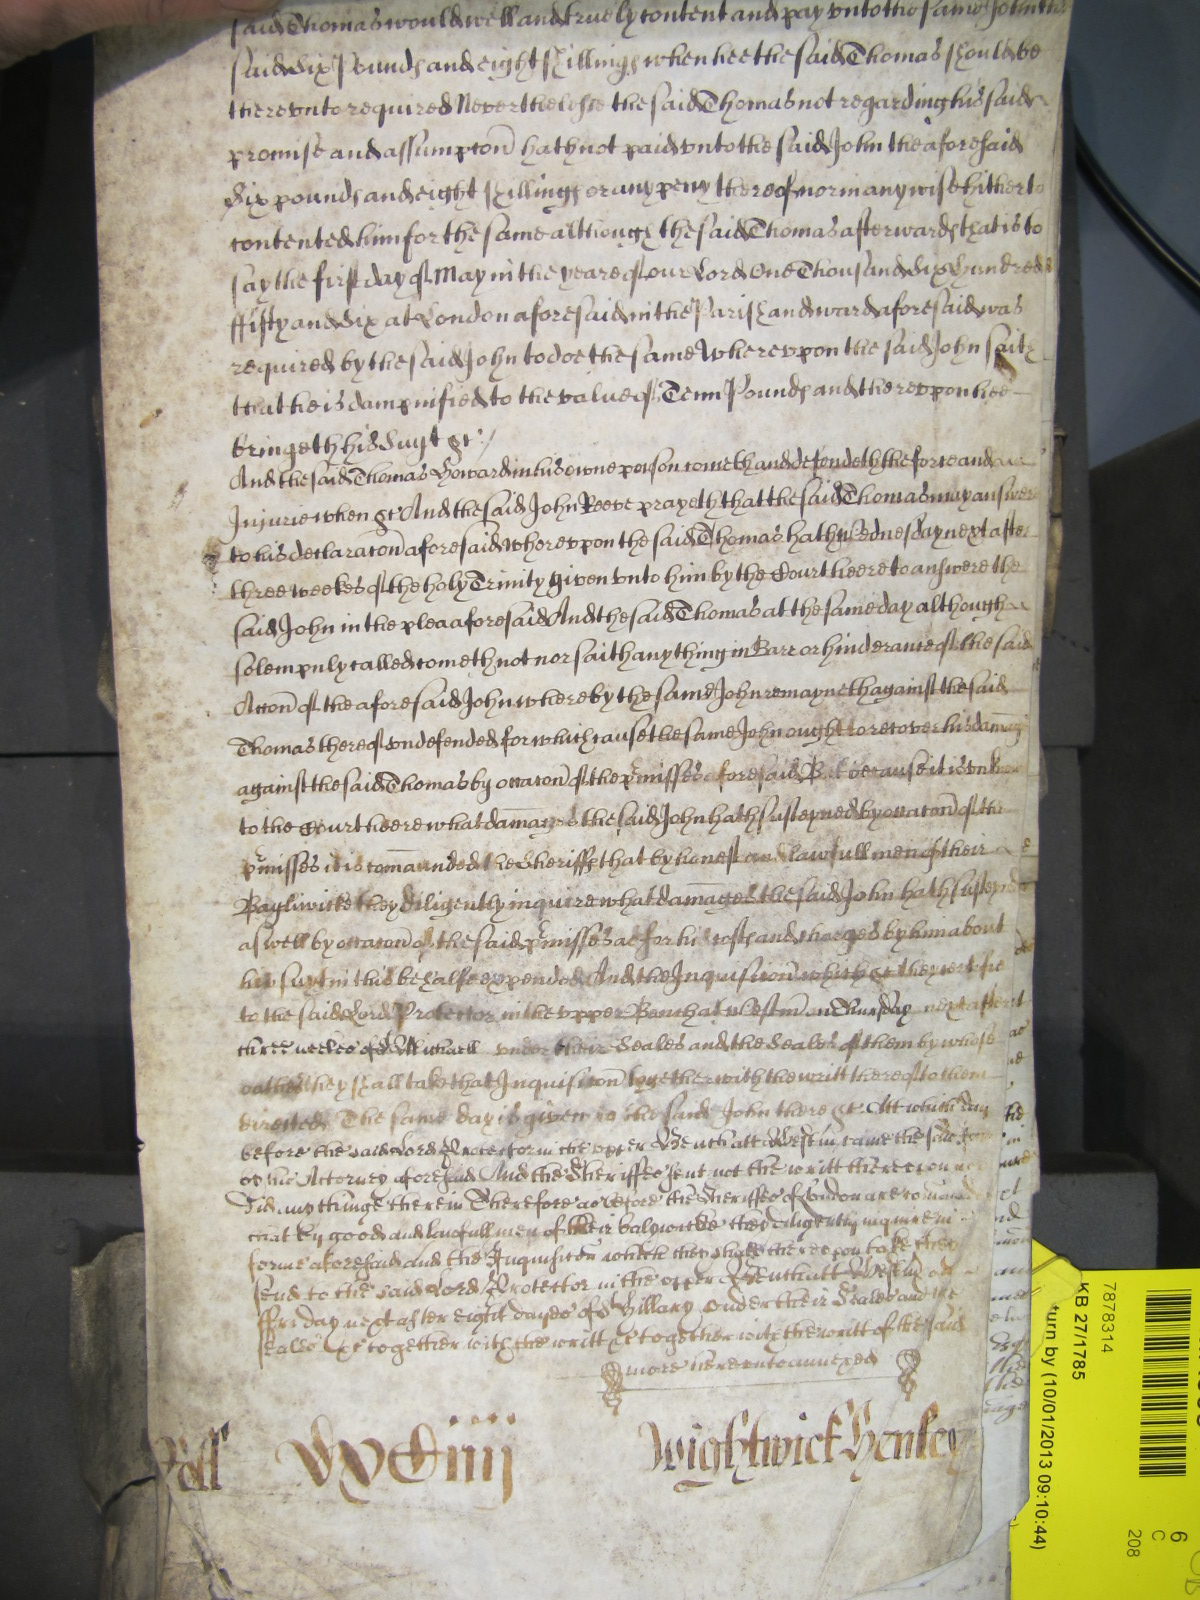 said Thomas would well and truely content and pay unto the same John the
said Six Pounds and eight shillings when hee the said Thomas should be
thereunto required Neverthelesse the said Thomas not regarding his said
promise and assumpcon hath not paid unto the said John the aforesaid
Six pounds and eight shillings or any peny thereof nor in any wise hitherto
contented him for the same although the said Thomas afterwards that is to
say the first day of May in the yeare of our Lord One Thousand Six Hundred
ffifty and Six at London aforesaid in the Parish and ward aforesaid was
required by the said John to doe the same Whereupon the said John saith
that he is dampnified to the value of Tenn Pounds and thereupon hee
bringeth his Suyt &c
And the said Thomas Howard in his owne person cometh and defendeth the force and
Injurie when &c And the said John Reeve prayeth that the said Thomas may answer
to his declaracon aforesaid whereupon the said Thomas hath Wednesday next after
three weekes of the holy Trinity given unto him by the Court heere to answere the
said John in the plea aforesaid And the said Thomas at the same day although
solempnly called cometh not nor saith any thing in Barr or hinderance of the said
Accon of the aforesaid John whereby the same John remayneth against the said
Thomas thereof undefended for which cause the same John ought to recover his damages
against the said Thomas by occacon of the pmisses aforesaid But because it is
to the Court heere what damages the said John hath susteyned by occacon of the
pmisses it is comaunded the Sheriffe that by honest and lawfull men of their
Bayliwicke they diligently inquire what damages the said John hath susteyned
aswell by occacon of the said pmisses as for his costs and charges by him about
his suyt in this behalfe expended And the Inquisicon which &c they certifie
to the said Lord Protector in the upper Bench at Westm on Thursday next after
three weekes of St Michaell under their Seales and the Seales of them by whose
oathes they shall take that Inquisicon together with the writt thereof to them
directed The same day is given to the said John there &c Att which day
before the said Lord Protector in the upper Bench att Westm came the said John
by his Attorney aforesaid And the Sheriffes sent not the writt thereupon nor
did any thinge therein Therefore as before the Sheriffes of London are comaunded
that by good and lawfull men of their balywicke they diligently inquire in
forme aforesaid and the Inquisicon which they shall thereupon take they
send to the said Lord Protector in the upper Bench att Westm on
ffriday next after eight dayes of St Hillary under their Seales and the
seales &c together with the writt &c together with the writt of the said
more hereunto annexed
Roll Wightwick Henley
KB 27/1785
7878314
urn by (10/01/2013 09:10:44)
6
C
208